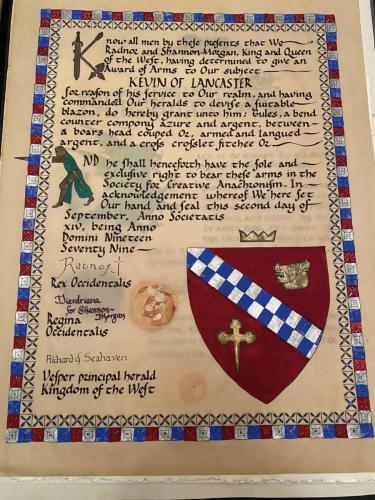 Know all men by these presents that We
Radnor and Shannon-Morgan, King and Queen
of the West, having determined to give an
Award of Arms to Our subject
KEVIN OF LANCASTER
for reason of his service to Our realm, and having
commanded Our heralds to devise a suitable
blazon, do hereby grant unto him: Gules, a bend
counter compony azure and argent, between
a boars head couped Or, armed and langued
argent, and a cross crosslet fitchee Or
And he shall henceforth have the sole and
exclusive right to bear these arms in the
Society for Creative Anachronism. In
acknowledgement whereof We here set
Our hand and seal this second day of
September, Anno Societatis
xiv, being Anno
Domini Nineteen
Seventy Nine
Radnor
Rex Occidentalis
for Shannon-
Morgan
Regina
Occidentalis
Richard of Seahaven
Vesper principal herald
Kingdom of the West